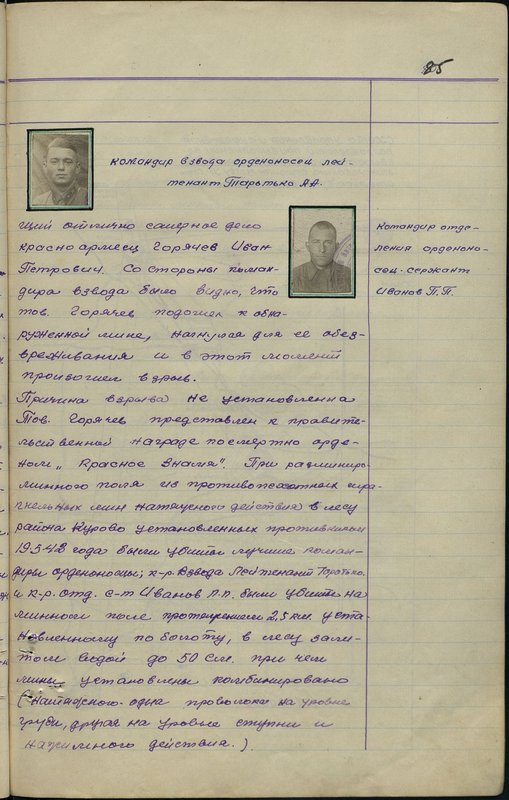 85
командир взвода орденоносец лей-
тенант Таратько А.А.
щий отлично саперное дело
красноармеец Горячев Иван
Петрович. Со стороны коман-
дира взвода было видно, что
тов. Горячев подошел к обна-
руженной мине, нагнулся для ее обез-
вреживания и в этот момент
произошел взрыв.
Причина взрыва не установленна
Тов. Горячев представлен к правите-
льственный награде посмертно орде-
ном „Красное Знамя". При разминиро-
минного поля из противопехотных
мин натяжного действия в лесу
района Курово установленных противником
19.5.42 года были убиты лучшие коман-
диры орденоносцы; к-р взвода Лейтенант Таратько.
и к-р отд. с-т Иванов П.П. были убиты на
минном поле протяжением 2,5 км. уста-
новленному по болоту, в лесу зали-
том водой до 50 см. при чем
мины установлены комбинировано
(натяжного-одна проволока на уровне
груди, другая на уровне ступни и
нажимного действия.)
Командир отде-
ления орденоно-
сец-сержант
Иванов П.П.